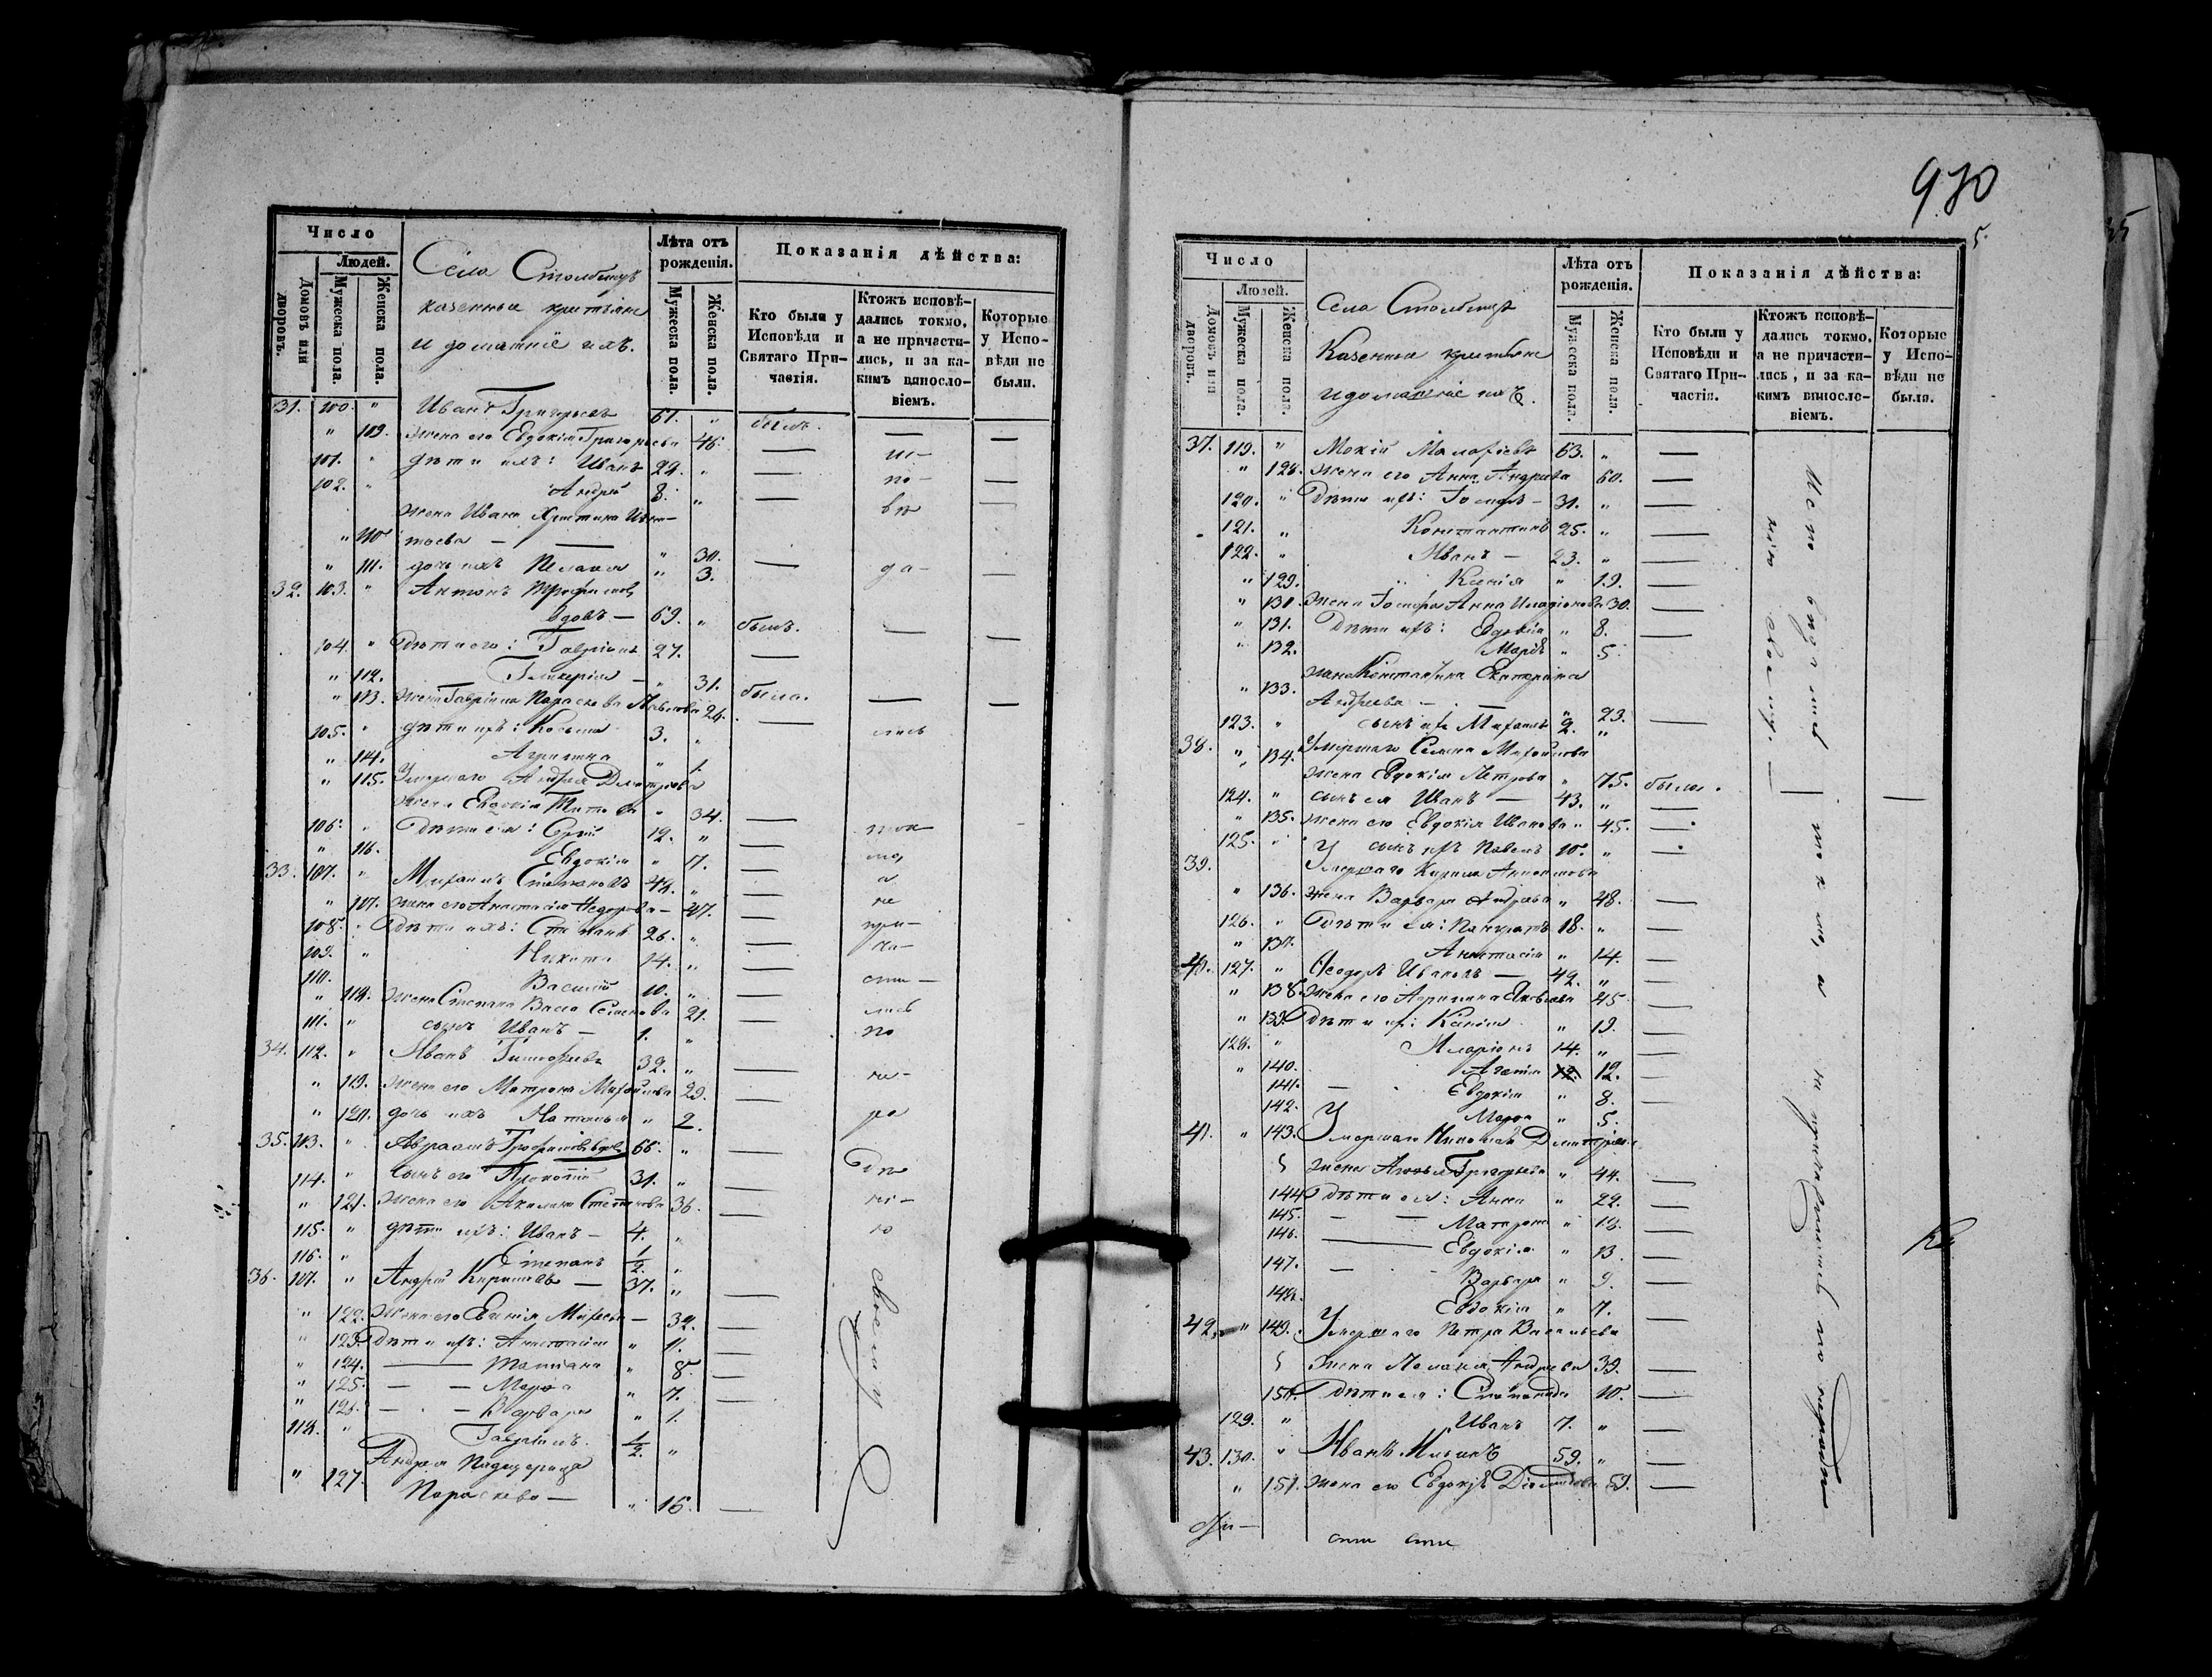 Число
Людей.
Домовъ или дворовъ.
Мужеска пола.
Женска пола.
Села Столбища
казенные крестьяне
и домашніе ихъ.
Лѣта отъ рожденія.
Мужеска пола.
Женска пола.
Показанія дѣйства:
Кто были у Исповѣди и Святаго Причастія.
Ктожъ исповѣдались токмо, а не причастились, и за какимъ винословіемъ.
Которые у Исповѣди не были.
31. 100. " Иванъ Григорьевъ 61. " былъ.
" 109. жена его Евдокія Григорьева 46. — — —
101. " дѣти ихъ: Иванъ 29. " — ис-
102. " Андрей 8. " — по- —
жена Ивана Христина вѣ
" 110 — " 30.
" 111. дочь ихъ Пелагея " 3. — да- —
32. 103. " Антонъ Трофимовъ
вдовъ — 69. " былъ. — —
104. " Дѣти его: Гавріилъ 27. —
" 112. Гликерія — " 31.
" 113. жена Гавріила Параскева Павлова 26. была. — —
105. " дѣти ихъ: Косьма 3. " — лись
" 114. Агрипина " 1.
" 115. Умершаго Андрея Дмитріева
жена Евдокія Титова " 34. —
106. " Дѣти ея: Сергій 12. " — ток
" 116. Евдокія " 7. — мо,
33. 107. " Михаилъ Степановъ 48. " — а
" 107. жена его Анастасія Ѳедорова — 47. — не
108. " Дѣти ихъ: Степанъ 26. " — при-
109. " Никита 14. " — ча-
110. Василій 10. " — сти-
" 118. жена Степана Васса Семенова 21. — лись
111. " сынъ Иванъ — 1. " по
34. 112. " Иванъ Тимофеевъ 32. " —
" 119. жена его Матрона Михайлова 29. — не-
" 120. дочь ихъ Наталья " 2. ра
35. 113. " Авраамъ Трофимовъ вдовъ 66. " —
114. " сынъ его Прокопій 31. " — дѣ
" 121. жена его Акилина Степанова 36. — ні-
115. " дѣти ихъ: Иванъ — 4. " ю
116. " Степанъ 1/2. "
36. 117. " Андрей Кириловъ — 37. " — своему
" 122. жена его Евгенія — 32. —
" 123. Дѣти ихъ: Анастасія " 11. —
" 124. — Татіана " 8. —
" 125. — — Марѳа " 7. —
" 126. — — Варвара " 1.
118. " Гавріилъ. 1/2. "
Андрея Падчерица
" 127. Параскева — " 16. —
930
5.
Число
Людей.
Домовъ или дворовъ.
Мужеска пола.
Женска пола.
Села Столбища
Казенные крестьяне
и домашніе ихъ.
Лѣта отъ рожденія.
Мужеска пола.
Женска пола.
Показанія дѣйства:
Кто были у Исповѣди и Святаго Причастія.
Ктожъ исповѣдались токмо, а не причастились, и за какимъ винословіемъ.
Которые у Исповѣди не были.
37. 119. " Мокій Малафіевъ 63. " —
" 128. жена его Анна Андреева 60. —
120. " Дѣти ихъ: Іосифъ — 31. " —
121. " Константинъ 25. " —
122. " Иванъ — 23. " —
" 129. Ксенія " 19. —
" 130. жена Іосифа Анна 30. —
" 131. Дѣти ихъ: Евдокія " 8. —
" 132. Марія " 5.
жена Константина Екатерина
" 133. Андреева — " 23. —
123. " сынъ ихъ Михаилъ 2. "
38. " 134. Умершаго Семена Михайлова
жена Евдокія Петрова " 75. была.
124. " сынъ ея Иванъ — 43. " —
" 135. жена его Евдокія Иванова " 45. —
125. " сынъ ихъ Павелъ 10. " —
39. Умершаго Кирила
" 136. жена Варвара Андреева " 48. —
126. " Дѣти ея: Панкратъ 18. " —
" 137. Анастасія " 14. —
40. 127. " Ѳеодоръ Ивановъ — 49. " —
" 138. жена его Агрипина Яковлева 45 —
" 139. Дѣти ихъ: Ксенія " 19. —
128. " Иларіонъ 14. " —
" 140. Агаѳія 12. 12. —
141. — Евдокія " 8. —
142. Марѳа " 5. —
41. " 143. Умершаго Николая Дмитріева
жена Григорьева " 44. —
144 Дѣти ея: Анна " 22. —
145. — — Матрона " 18. —
146. — Евдокія " 13. —
147. — Варвара " 9. —
148. Евдокія " 7. —
42. " 149. Умершаго Петра Васильева
жена Андреева 39. —
150. Дѣти ея: Степанида 10. —
129. " Иванъ 7. " —
43. 130. " Иванъ Ильинъ 59. " —
" 151. жена его Евдокія 59. —
Исповѣдались токмо, а не причастились по нерадѣнію своему. —